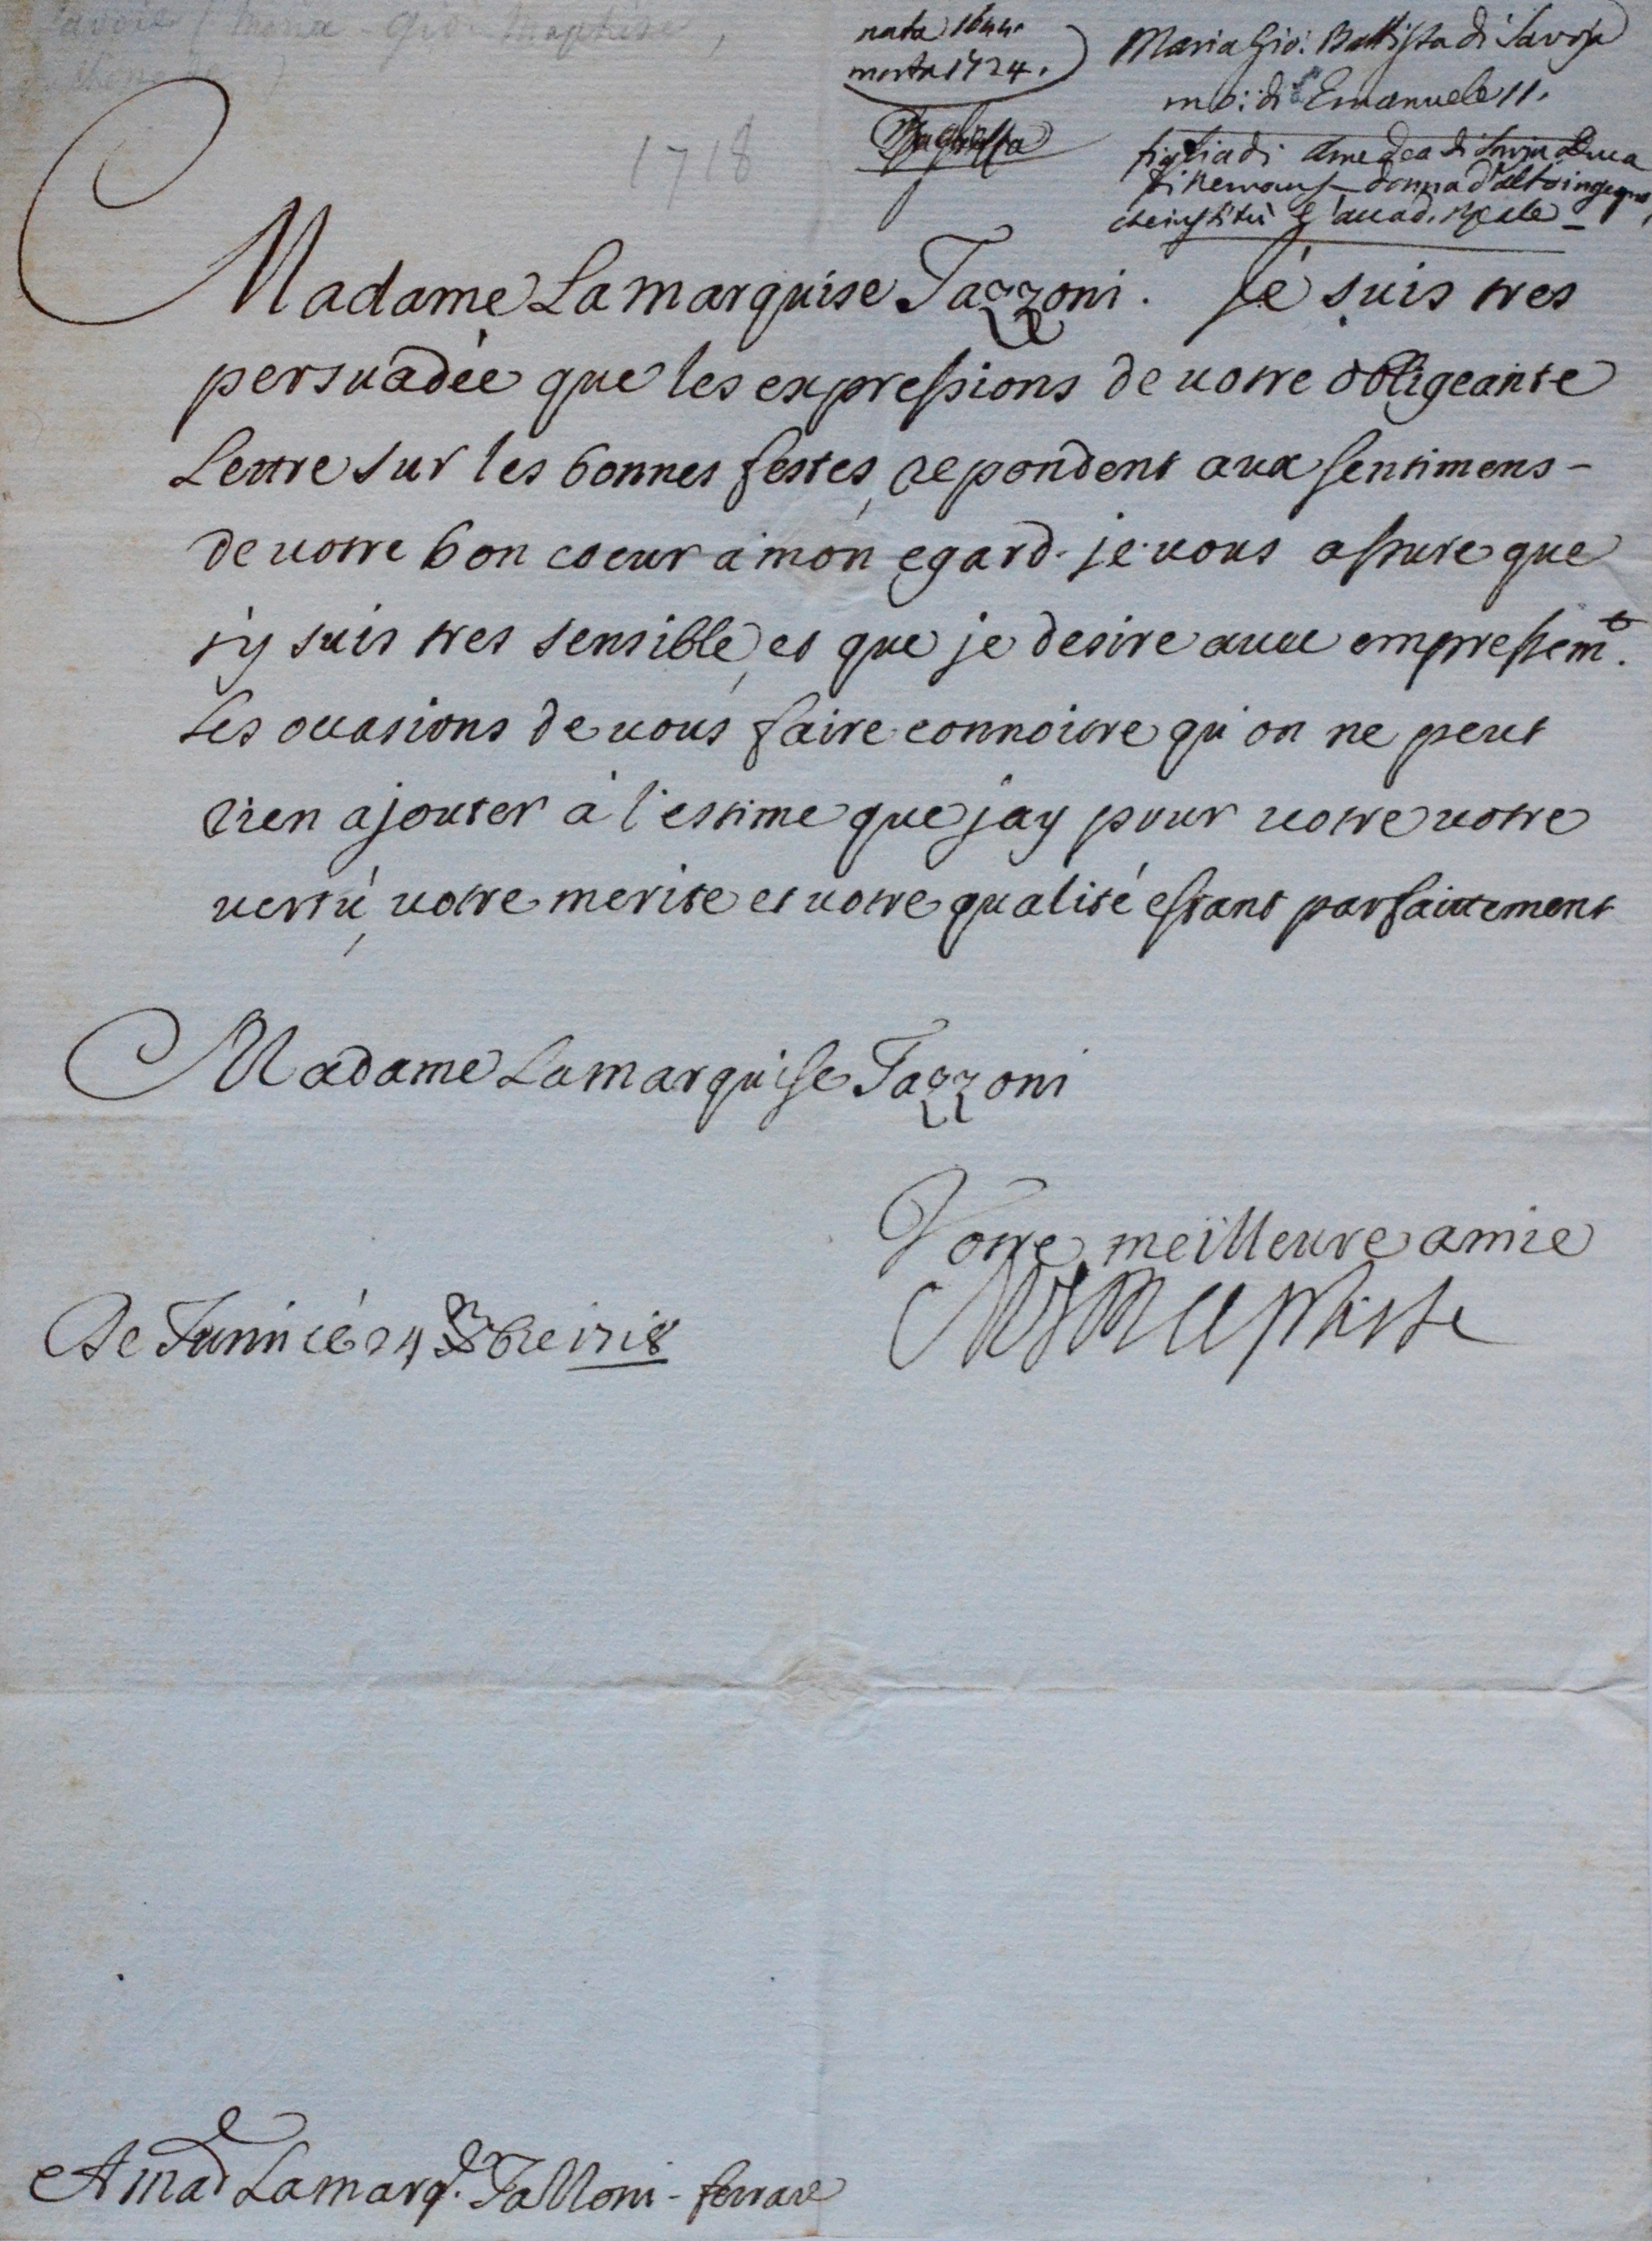 Savoie (Maria - Gio. Baptiste,
nata 1644.
morta 1724.
Maria Gio: Battista di Savoja
mo: di Emanuele II.
figlia di Amedeo di Savoja Duca
di Nemours - donna d'alto ingegno
che istituì l'accad. Reale -
1718
Madame La marquise Tazzoni. Je suis tres
persuadée que les expressions de votre obligeante
Lettre sur les bonnes festes, repondent aux sentimens -
de votre bon coeur a mon egard. je vous assure que
j'y suis tres sensible, et que je desire avec empressem.t
Les occasions de vous faire connoitre qu'on ne peut
rien ajouter à l'estime que jay pour votre votre
vertu, votre merite et votre qualité estant parfaittement
Madame La marquise Tazzoni
Votre meilleure amie
M J Baptiste
De Turin ce 24 Xbre 1718
A Mad.e La marq.se Tassoni - ferrare